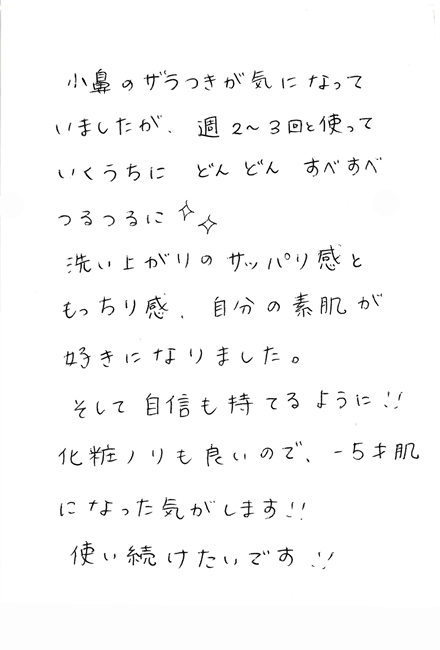 小鼻のザラつきが気になって
いましたが、週2〜3回と使って
いくうちに どんどん すべすべ
つるつるに✧✧
洗い上がりのサッパリ感と
もっちり感、自分の素肌が
好きになりました。
そして自信も持てるように!!
化粧ノリも良いので、-5才肌
になった気がします!!
使い続けたいです!!